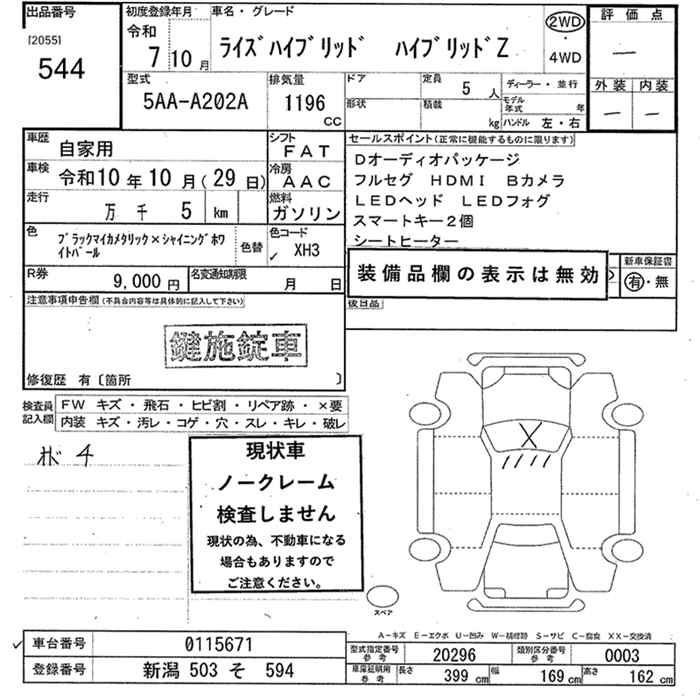 出品番号
[2055]
544
初度登録年月
令和
7年10月
車名・グレード
ライズハイブリッド ハイブリッドZ
2WD
・
4WD
評価点
—
外装 内装
— —
型式
5AA-A202A
排気量
1196
CC
ドア
形状
定員
5人
積載
kg
ディーラー・並行
モデル年式 年
ハンドル 左・右
車歴
自家用
シフト
FAT
車検
令和10年10月(29日)
冷房
AAC
走行
万 千 5 km
燃料
ガソリン
色
ブラックマイカメタリック×シャイニングホワ
イトパール
色替
色コード
XH3
R券
9,000円
名変通知期限
月 日
セールスポイント(正常に機能するものに限ります)
Dオーディオパッケージ
フルセグ HDMI Bカメラ
LEDヘッド LEDフォグ
スマートキー2個
シートヒーター
装備品欄の表示は無効
新車保証書
有・無
後日品
注意事項申告欄(不具合内容等は具体的に記入して下さい)
鍵施錠車
修復歴 有〔箇所 〕
検査員
記入欄
FW キズ・飛石・ヒビ割・リペア跡・×要
内装 キズ・汚レ・コゲ・穴・スレ・キレ・破レ
現状車
ノークレーム
検査しません
現状の為、不動車になる
場合もありますので
ご注意ください。
X
スペア
A-キズ E-エクボ U-凹み W-補修跡 S-サビ C-腐食 XX-交換済
車台番号
0115671
登録番号
新潟 503 そ 594
型式指定番号
参考
20296
類別区分番号
参考
0003
車庫証明用
参考
長さ 399 cm 幅 169 cm 高さ 162 cm